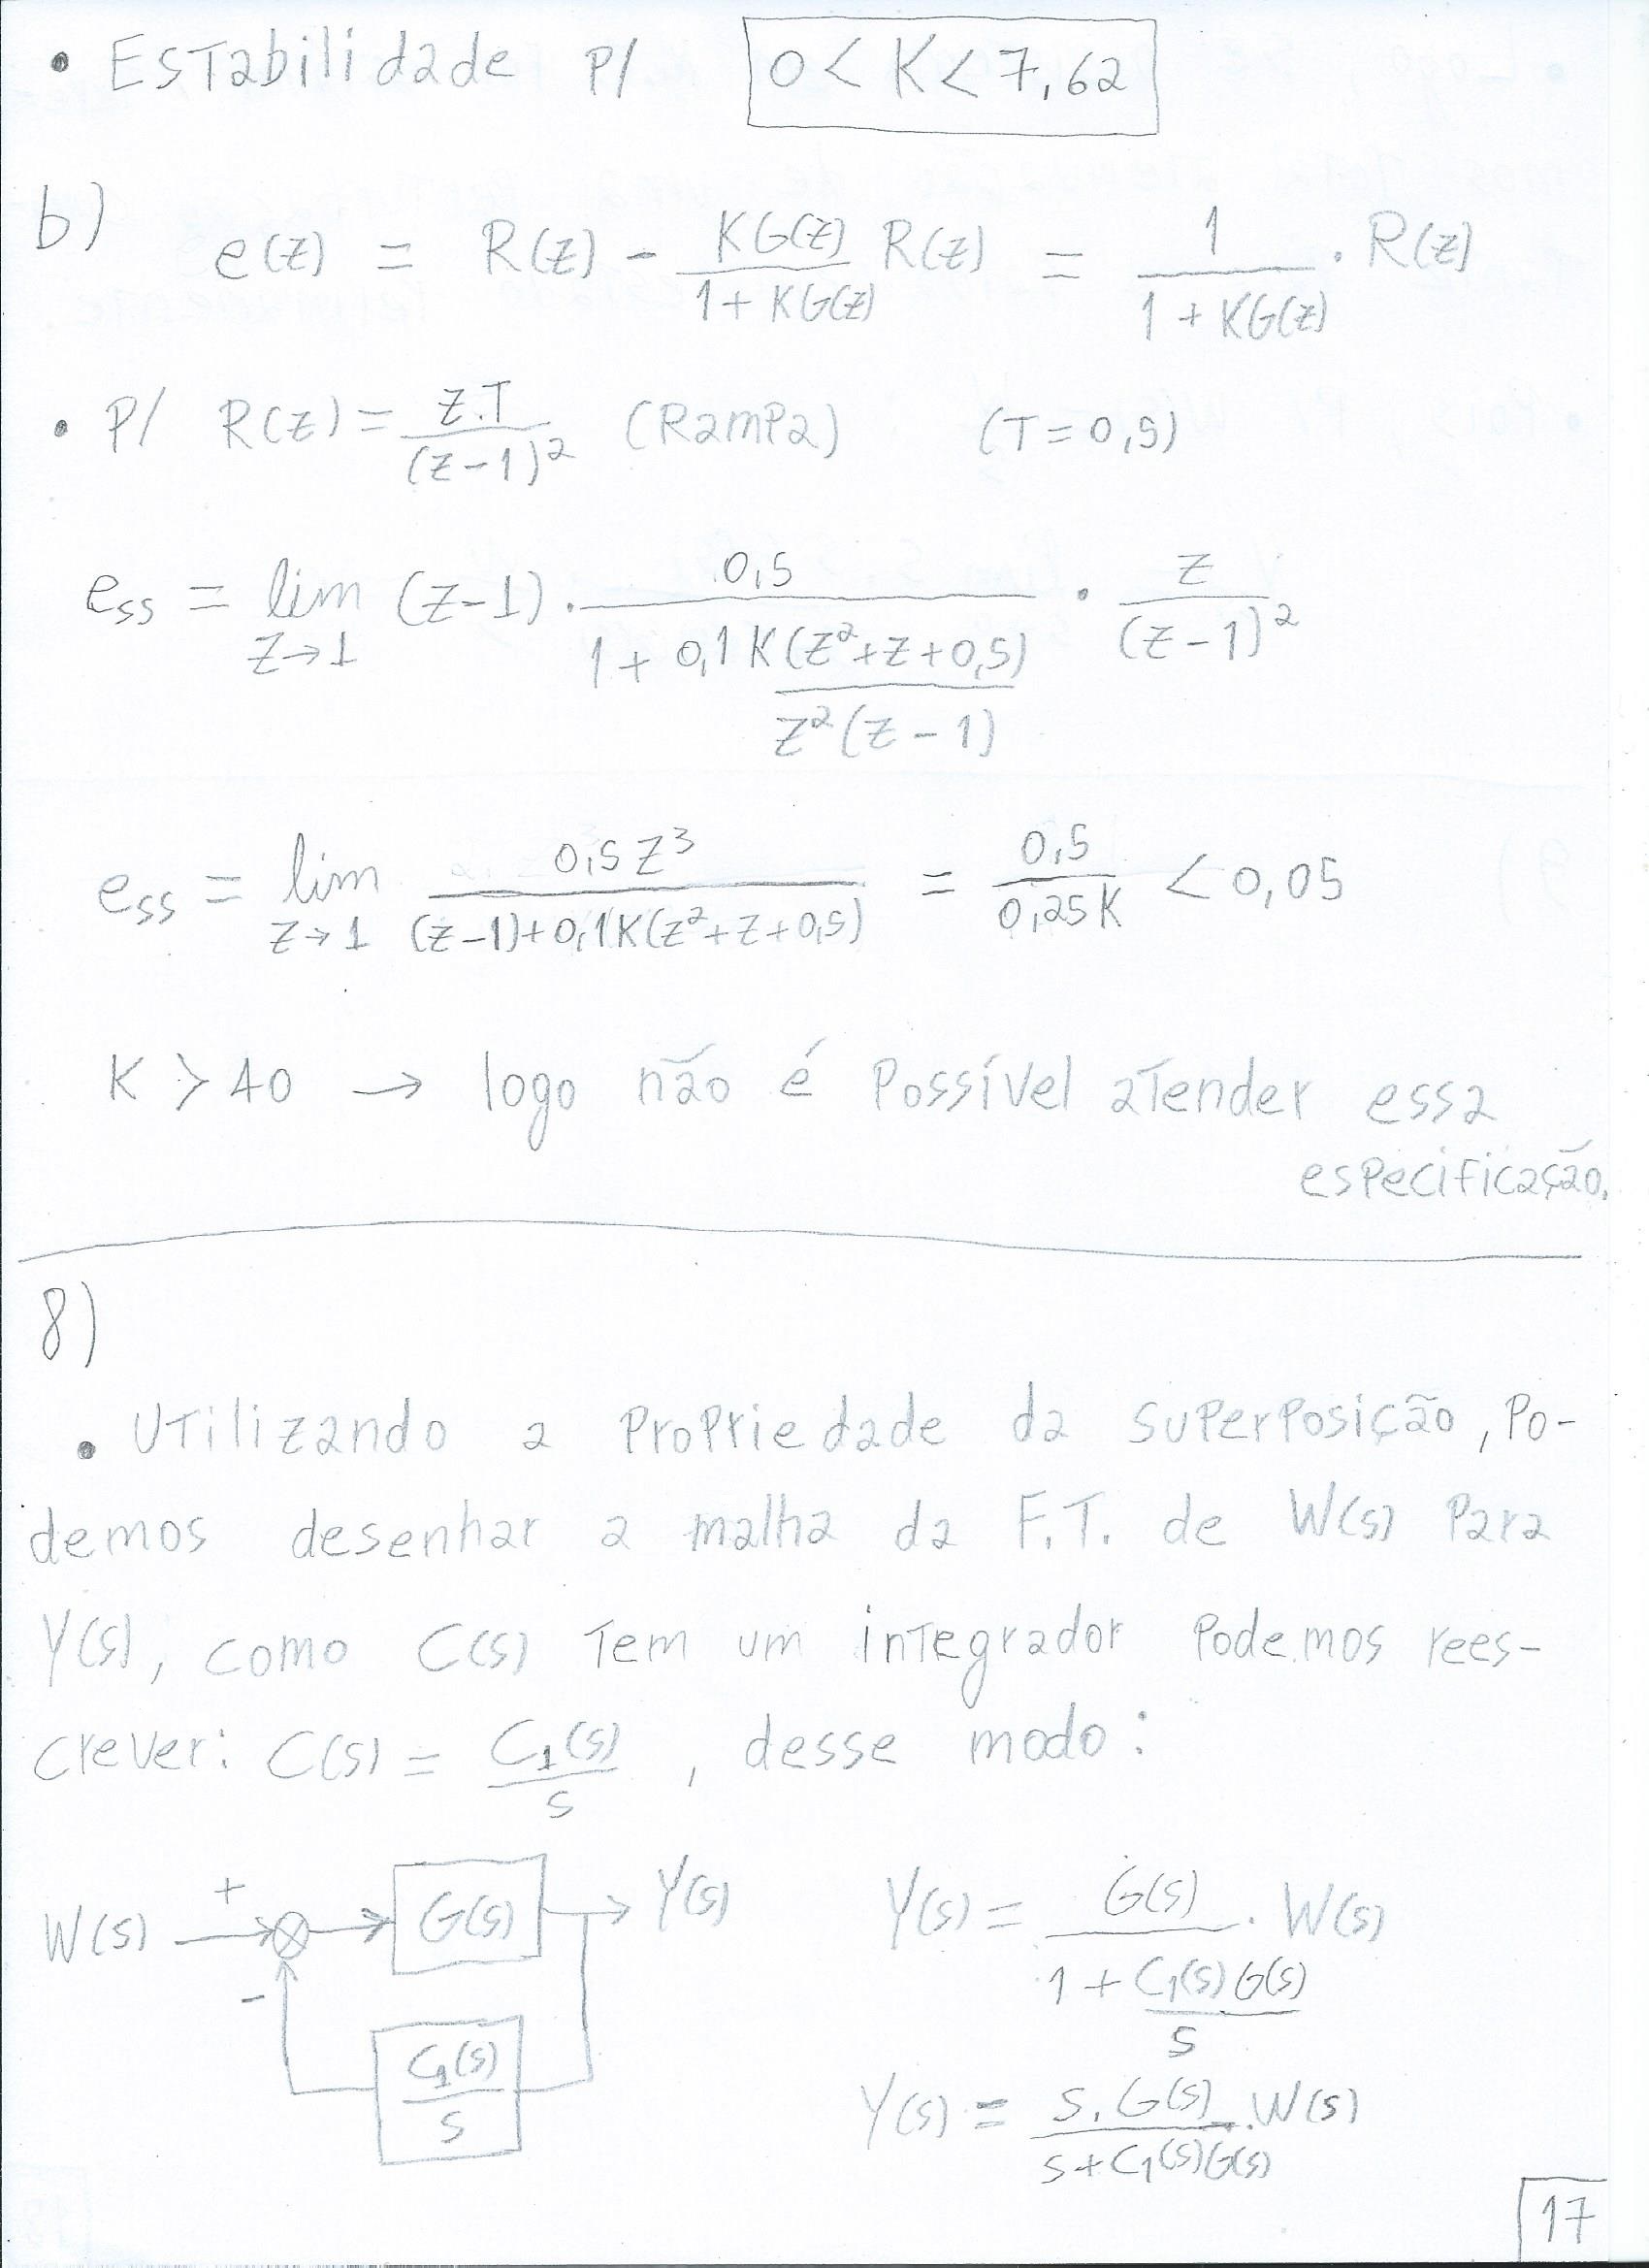 • Estabilidade p/ 0 < K < 7,62
b) e(z) = R(z) - KG(z)/(1 + KG(z)) R(z) = 1/(1 + KG(z)) . R(z)
• p/ R(z) = z.T/(z-1)² (Rampa) (T = 0,5)
ess = lim z→1 (z-1) . 0,5/(1 + 0,1K(z²+z+0,5)/(z²(z-1))) . z/(z-1)²
ess = lim z→1 0,5z³/((z-1)+0,1K(z²+z+0,5)) = 0,5/0,25K < 0,05
K > 40 → logo não é possível atender essa
especificação.
8)
• Utilizando a propriedade da superposição, po-
demos desenhar a malha da F.T. de W(s) para
Y(s), como C(s) tem um integrador podemos rees-
crever: C(s) = C₁(s)/s , desse modo:
W(s) + - G(s) Y(s)
C₁(s)/s
Y(s) = G(s)/(1 + C₁(s)G(s)/s) . W(s)
Y(s) = s.G(s)/(s+C₁(s)G(s)) . W(s)
17